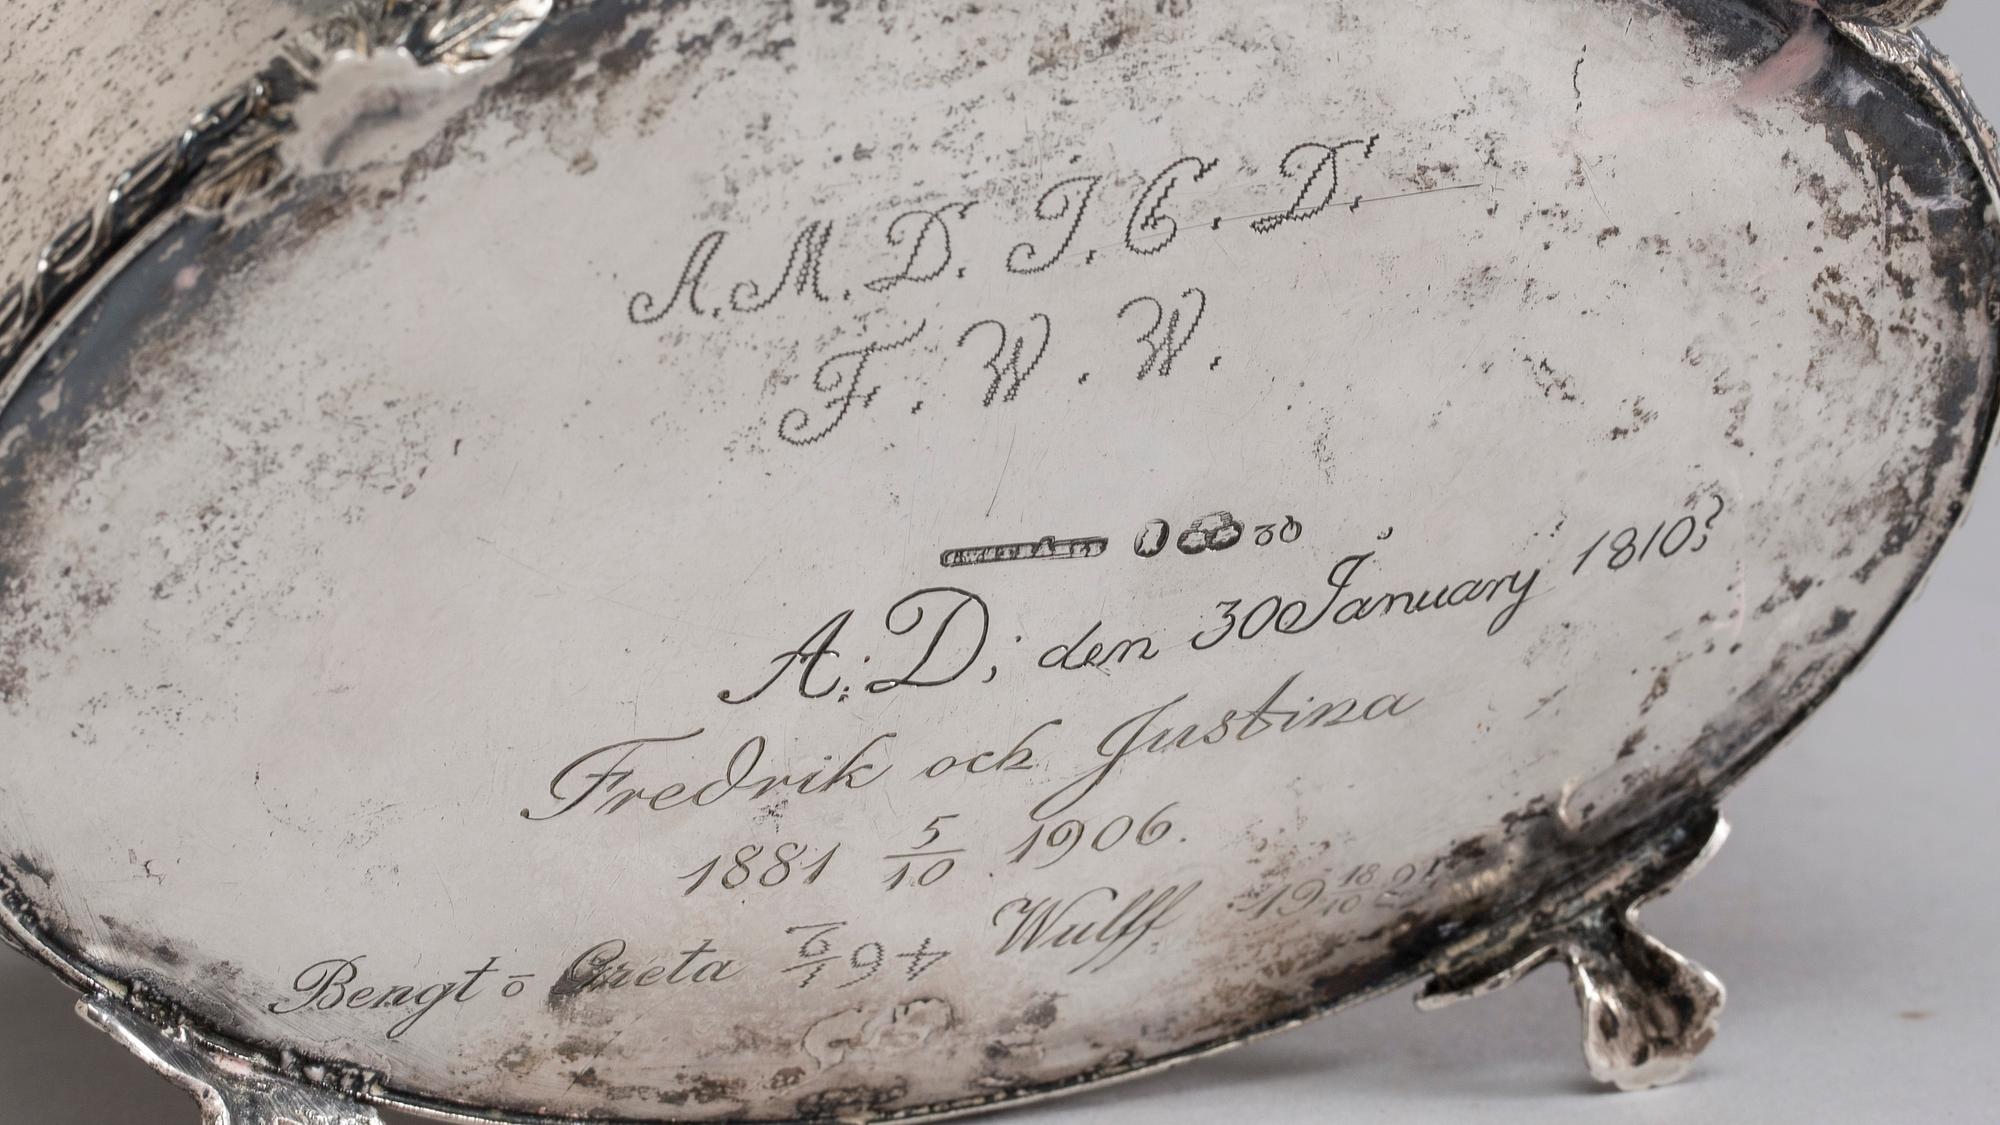 A. M. D. J. C. D.
F. W. W.
A: D; den 30 January 1810?
Fredrik och Justina
1881 5/10 1906.
Bengt o Greta 7/9 46 Wulff